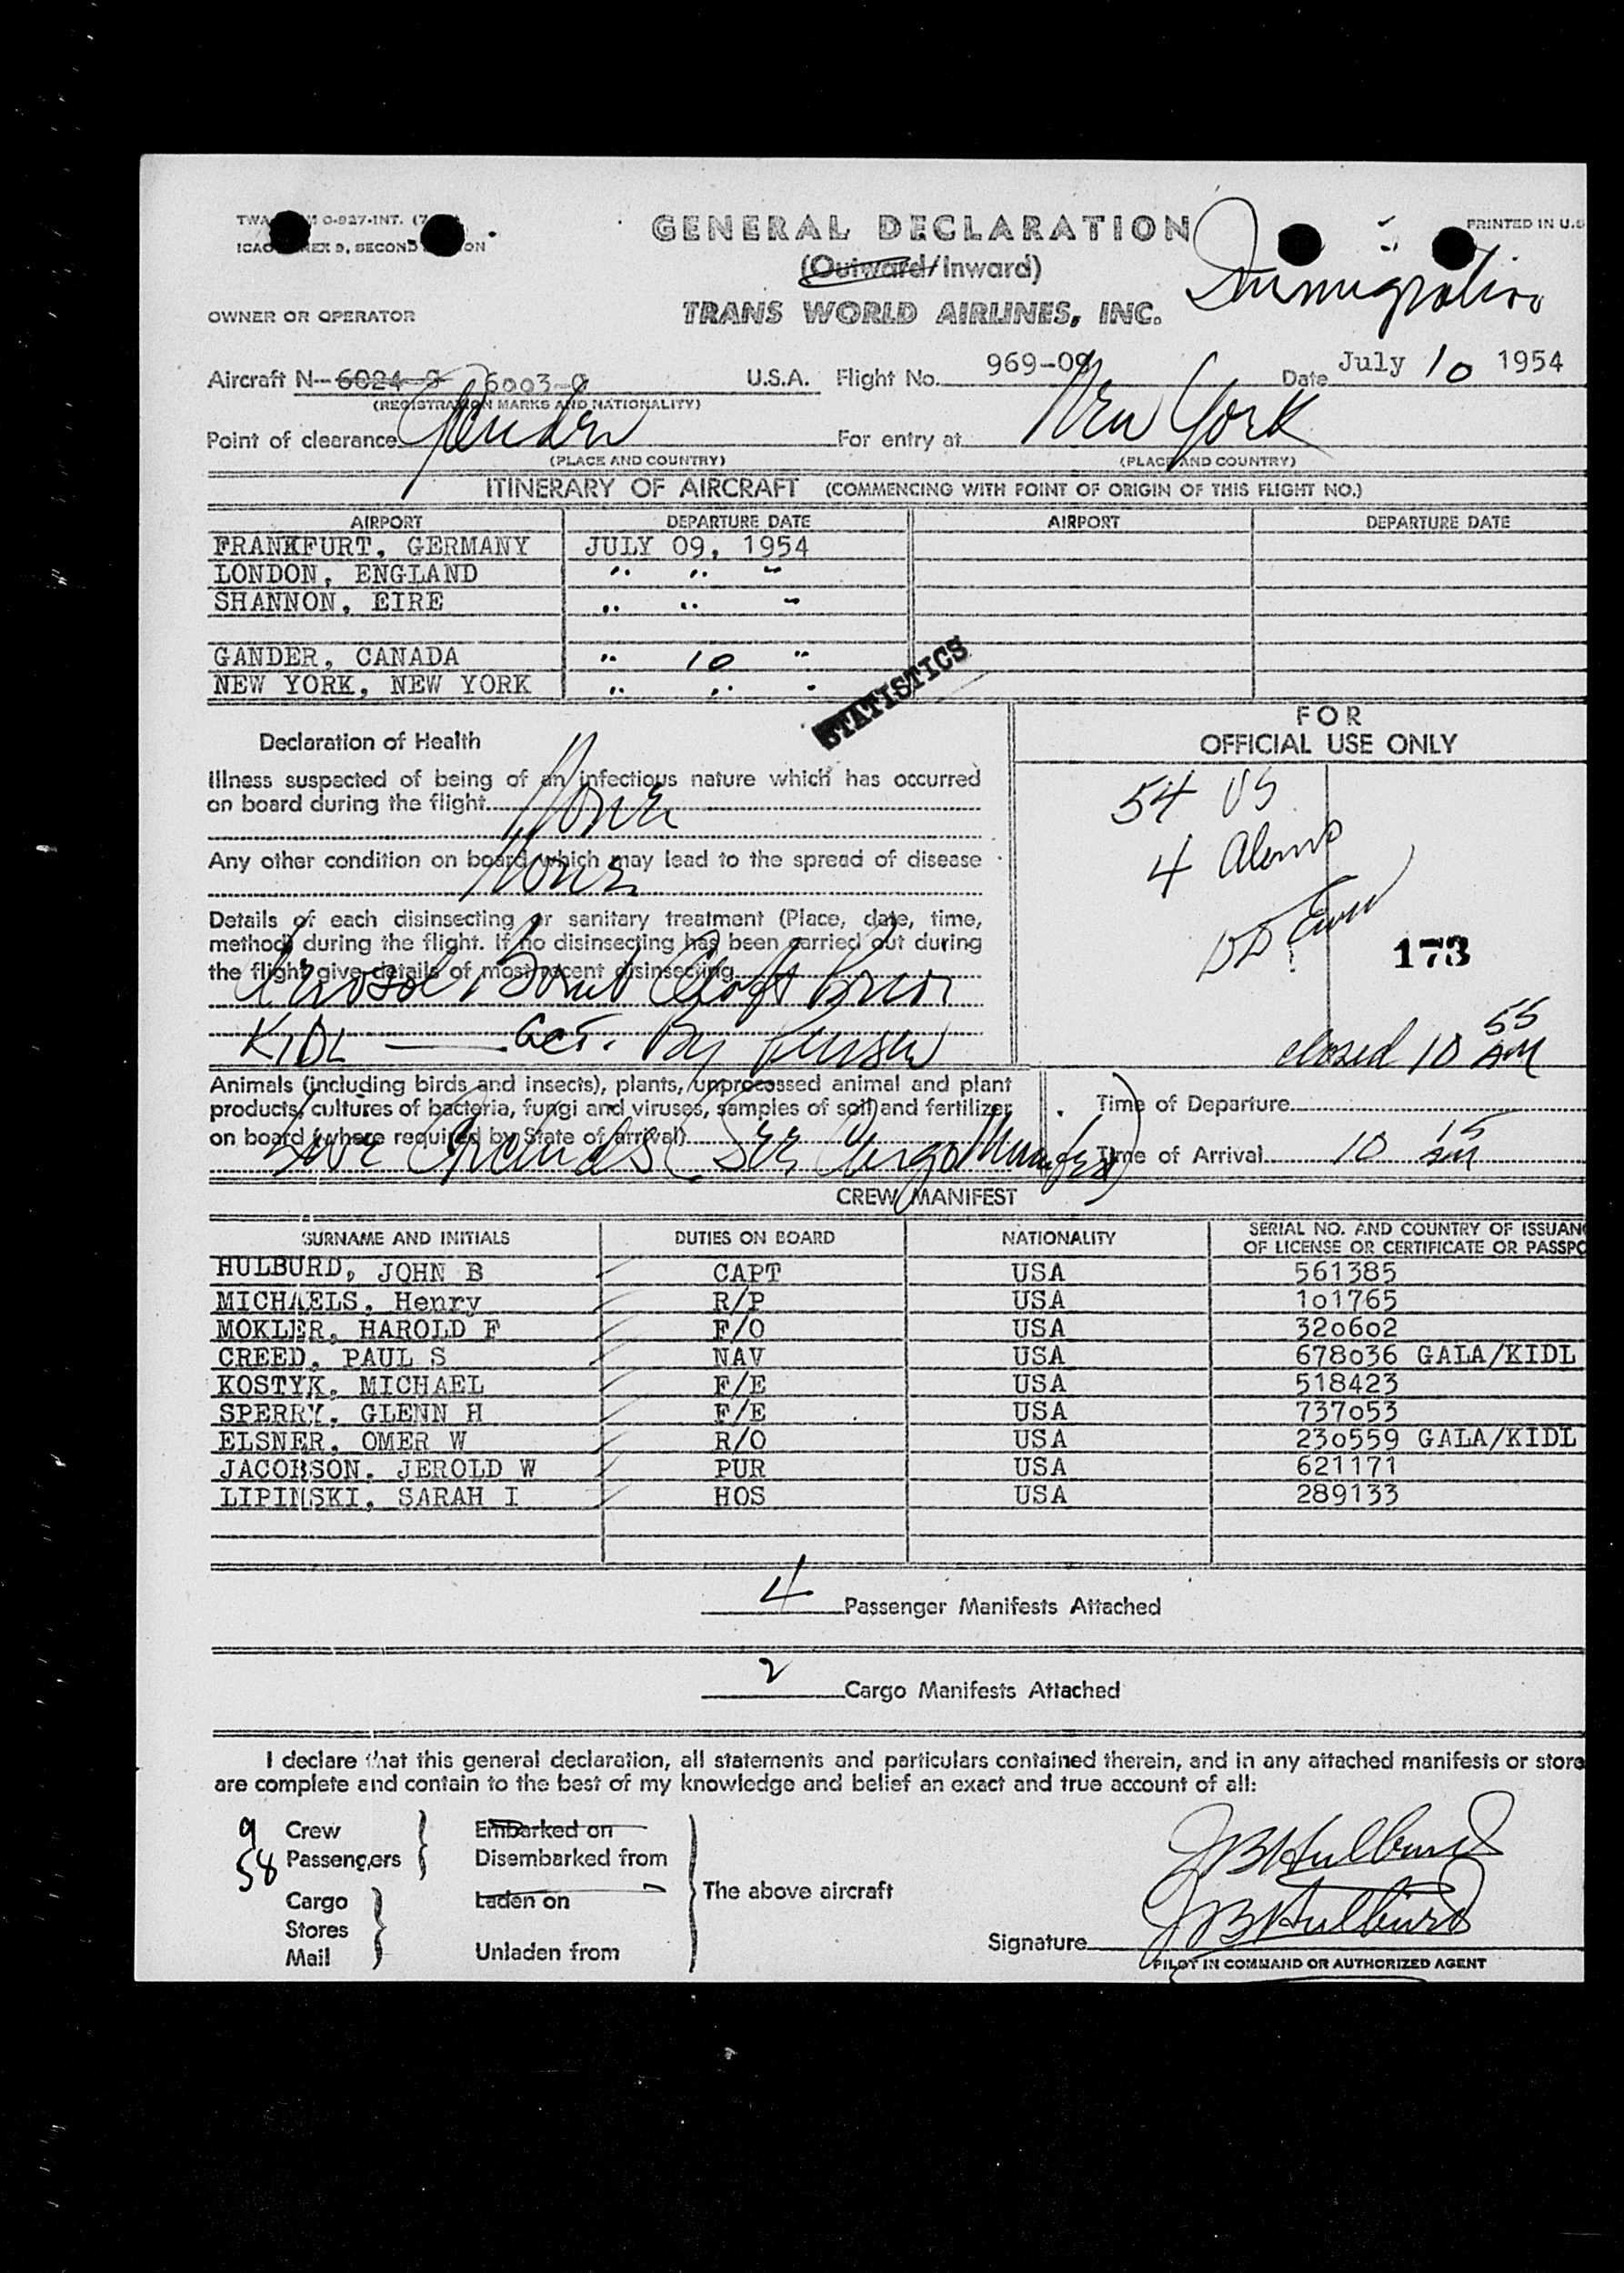 GENERAL DECLARATION
PRINTED IN U.S
(Outward/Inward)
Immigration
OWNER OR OPERATOR
TRANS WORLD AIRLINES, INC.
Aircraft N-6024-C 6003-C U.S.A. Flight No. 969-09 Date July 10 1954
(REGISTRATION MARKS AND NATIONALITY)
Point of clearance Gander For entry at New York
(PLACE AND COUNTRY) (PLACE AND COUNTRY)
ITINERARY OF AIRCRAFT (COMMENCING WITH POINT OF ORIGIN OF THIS FLIGHT NO.)
AIRPORT DEPARTURE DATE AIRPORT DEPARTURE DATE
FRANKFURT, GERMANY JULY 09, 1954
LONDON, ENGLAND " " "
SHANNON, EIRE " " "
GANDER, CANADA " 10 "
NEW YORK, NEW YORK " " "
STATISTICS
FOR
OFFICIAL USE ONLY
Declaration of Health
Illness suspected of being of an infectious nature which has occurred
on board during the flight None
Any other condition on board which may lead to the spread of disease
None
Details of each disinsecting or sanitary treatment (Place, date, time,
method) during the flight. If no disinsecting has been carried out during
the flight give details of most recent disinsecting
Aerosol Bomb Aloft Prior
KIDL — Act. By Purser
54 US
4 Aliens
173
closed 10 55 AM
Animals (including birds and insects), plants, unprocessed animal and plant
products, cultures of bacteria, fungi and viruses, samples of soil and fertilizer
on board (where required by State of arrival)
Live Orchids (See Cargo Manifest)
Time of Departure
Time of Arrival 10 15 AM
CREW MANIFEST
SURNAME AND INITIALS DUTIES ON BOARD NATIONALITY SERIAL NO. AND COUNTRY OF ISSUAN
OF LICENSE OR CERTIFICATE OR PASSPO
HULBURD, JOHN B CAPT USA 561385
MICHAELS, Henry R/P USA 101765
MOKLER, HAROLD F F/O USA 320602
CREED, PAUL S NAV USA 678036 GALA/KIDL
KOSTYK, MICHAEL F/E USA 518423
SPERRY, GLENN H F/E USA 737053
ELSNER, OMER W R/O USA 230559 GALA/KIDL
JACOBSON, JEROLD W PUR USA 621171
LIPINSKI, SARAH I HOS USA 289133
4 Passenger Manifests Attached
2 Cargo Manifests Attached
I declare that this general declaration, all statements and particulars contained therein, and in any attached manifests or store
are complete and contain to the best of my knowledge and belief an exact and true account of all:
9 Crew
58 Passengers
Cargo
Stores
Mail
Embarked on
Disembarked from
Laden on
Unladen from
The above aircraft
JB Hulburd
Signature JB Hulburd
PILOT IN COMMAND OR AUTHORIZED AGENT